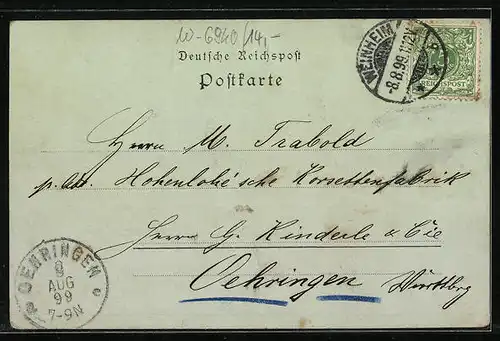 W-6940/14,-
Deutsche Reichspost
Postkarte
WEINHEIM
-8.8.99. 11-12V.
REICHSPOST
Herrn M. Trabold
p. Adr. Hohenlohe'sche Korsettenfabrik
Herrn G. Kinderle & Cie
Oehringen Württbg
OEHRINGEN
8
AUG
99
7-9N